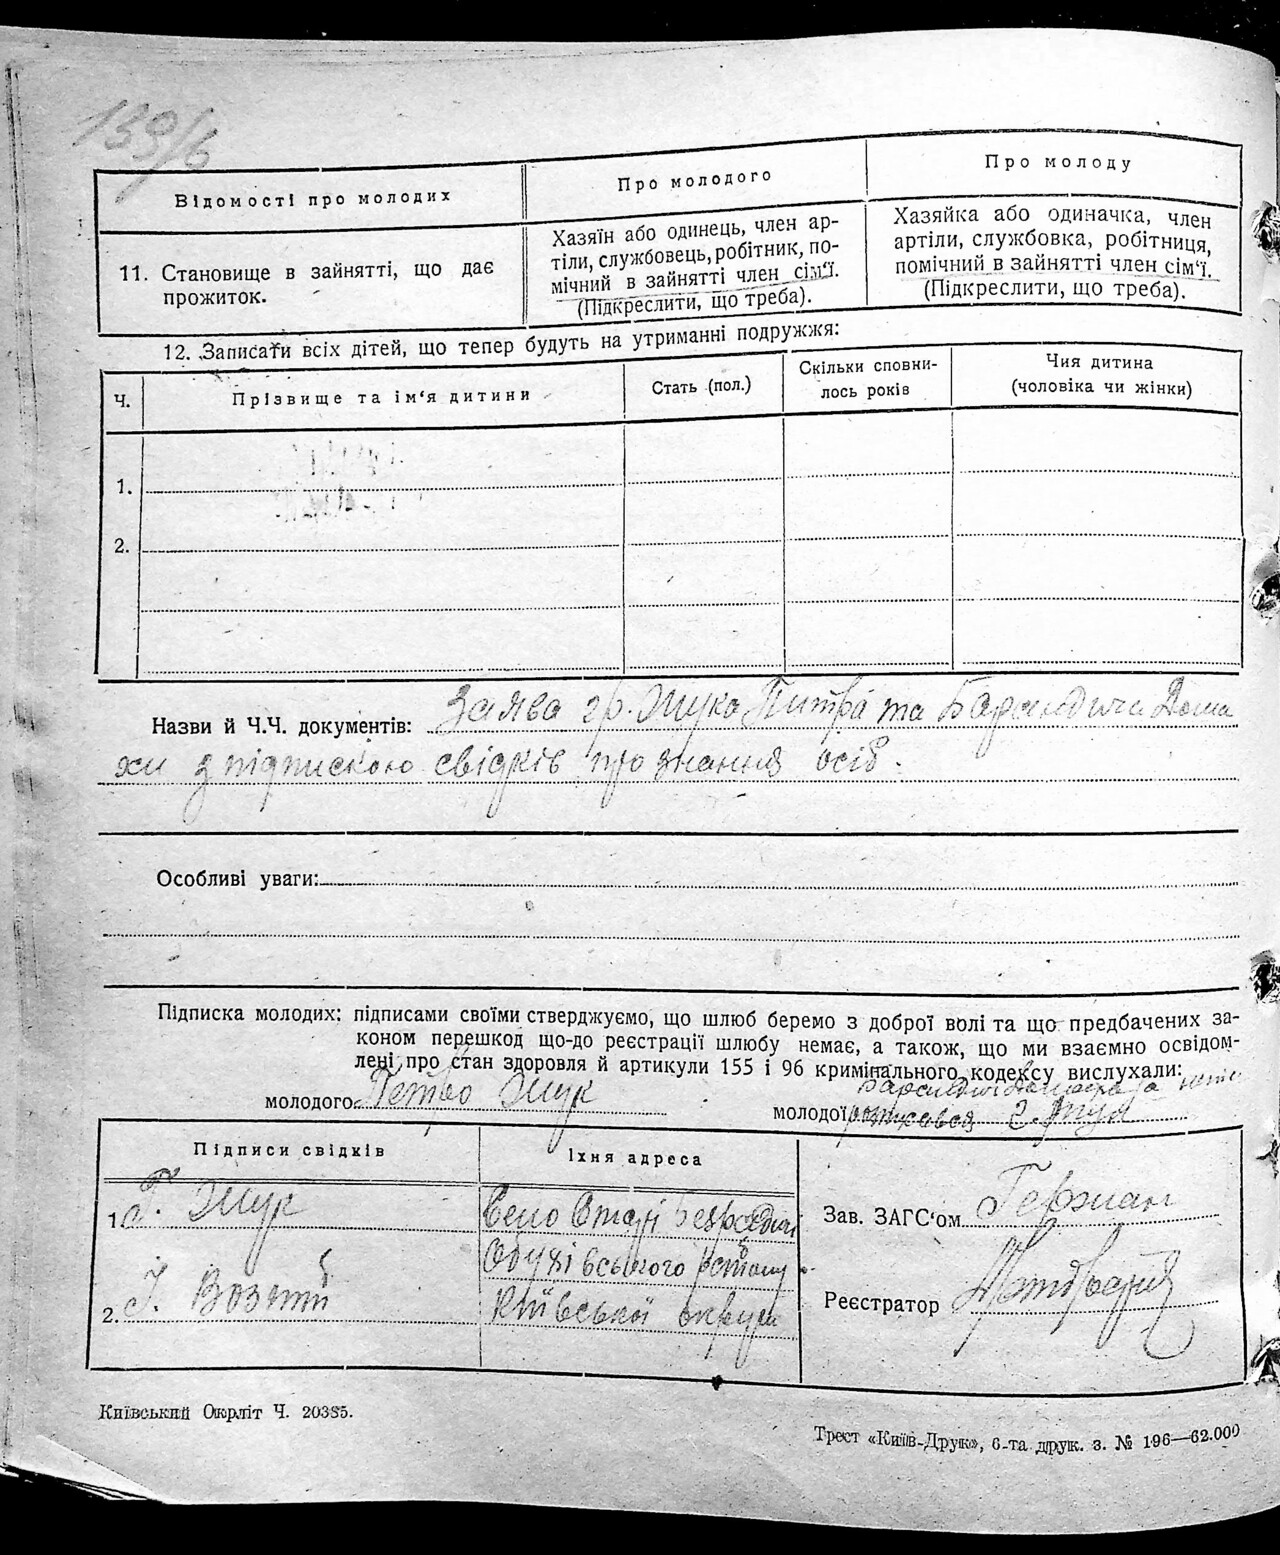 139/б
Відомості про молодих
Про молодого
Про молоду
11. Становище в зайнятті, що дає
прожиток.
Хазяїн або одинець, член ар-
тіли, службовець, робітник, по-
мічний в зайнятті член сім'ї.
(Підкреслити, що треба).
Хазяйка або одиначка, член
артіли, службовка, робітниця,
помічний в зайнятті член сім'ї.
(Підкреслити, що треба).
12. Записати всіх дітей, що тепер будуть на утриманні подружжя:
Ч.
Прізвище та ім'я дитини
Стать (пол.)
Скільки сповни-
лось років
Чия дитина
(чоловіка чи жінки)
1.
2.
Назви й Ч.Ч. документів: Заява гр. Жука Питра та Барандича Дома
хи з підпискою свідків про знання осіб.
Особливі уваги:
Підписка молодих: підписами своїми стверджуємо, що шлюб беремо з доброї волі та що предбачених за-
коном перешкод що-до реєстрації шлюбу немає, а також, що ми взаємно освідом-
лені про стан здоровля й артикули 155 і 96 кримінального кодексу вислухали:
молодого Петро Жук
молодої розписався Г. Жук
Підписи свідків
Їхня адреса
1. Г. Жук
Село Старі Безрадичі
Обухівського району
2. І. Возний
Київської округи
Зав. ЗАГС'ом Герман
Реєстратор
Київський Окрліт Ч. 20385.
Трест «Київ-Друк», 6-та друк. з. № 196—62.000